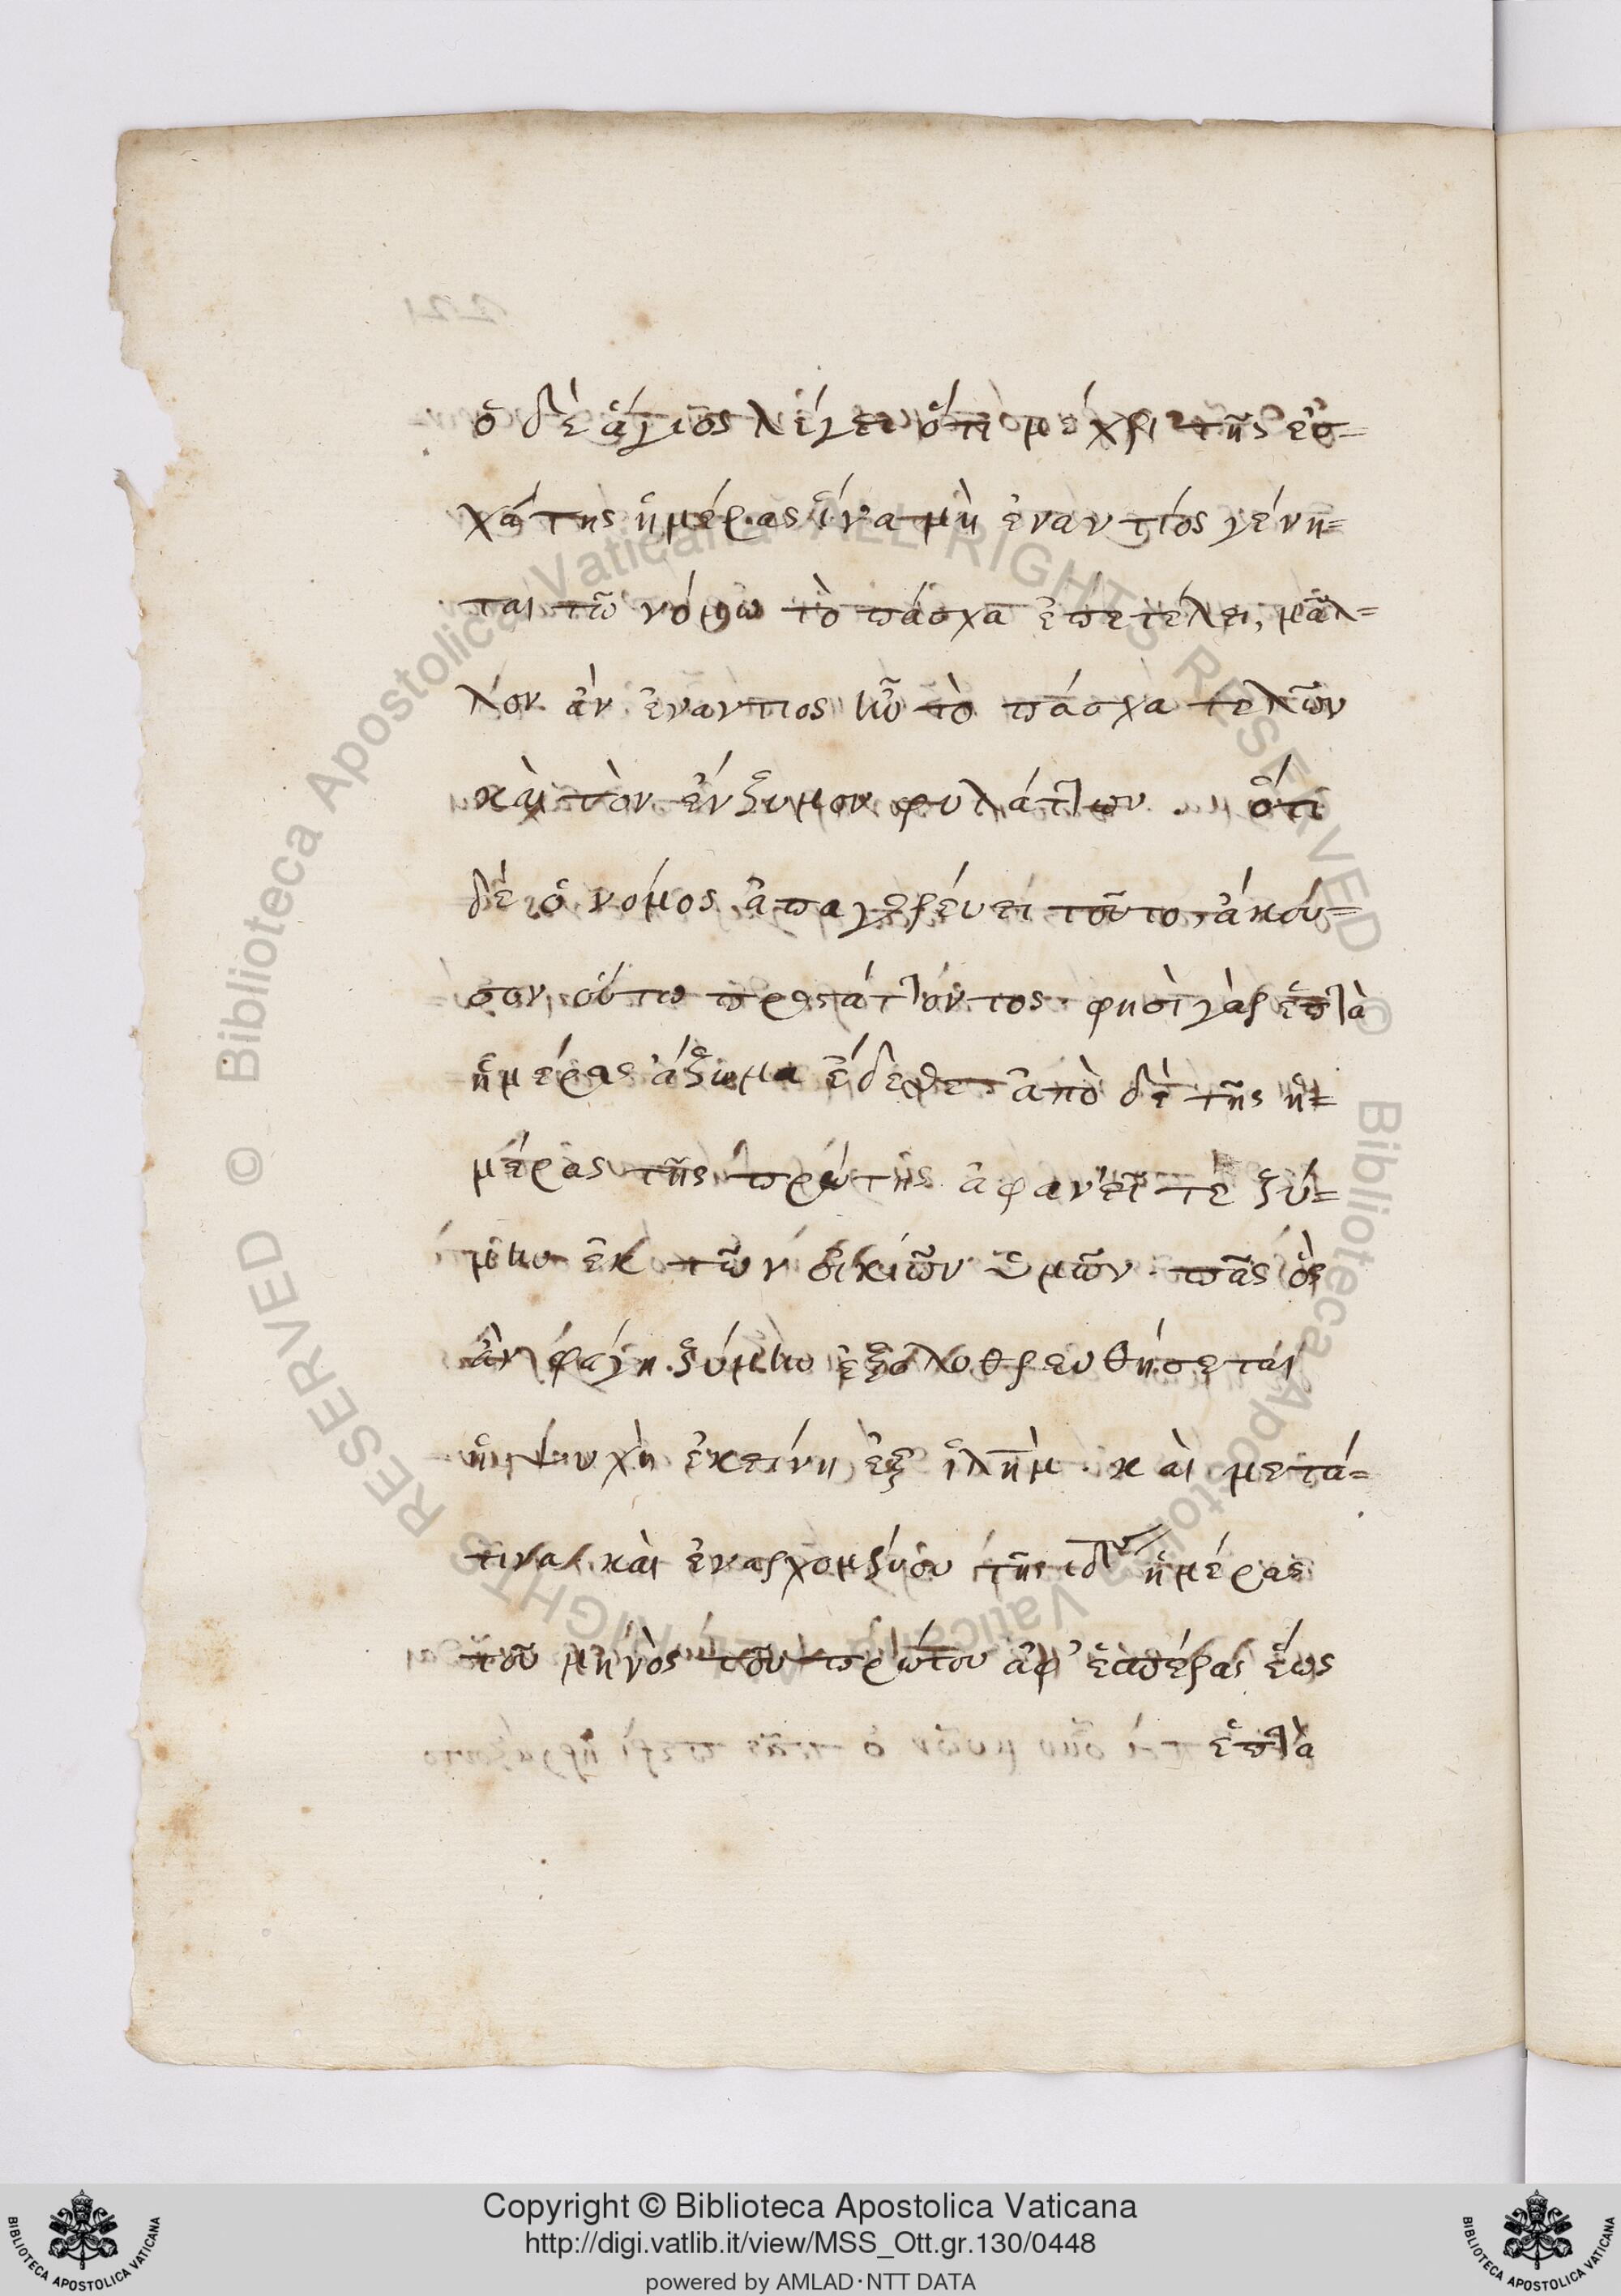 ὁ δὲ ἅγιος λέγει ὅτι μέχρι τῆς ἐσ=
χάτης ἡμέρας ἵνα μὴ ἐναντίος γένη=
ται τῶ νόμω τὸ πάσχα ἐπετέλει, μᾶλ=
λον ἂν ἐναντιος ἦν τὸ πάσχα τελῶν
καὶ τὸν ἔνζυμον φυλάττων. ὅτι
δὲ ὁ νόμος ἀπαγορεύει τοῦτο, ἄκου=
σον οὕτω προστάττοντος· φησὶ γὰρ ἑπτὰ
ἡμέρας ἄζυμα ἔδεσθε· ἀπὸ δὲ τῆς ἡ=
μέρας τῆς πρώτης ἀφανεῖτε ζύ=
μην ἐκ τῶν οἰκιῶν ὑμῶν. πᾶς ὃς
ἂν φάγη ζύμην ἐξολοθρευθήσεται
ἡ ψυχὴ ἐκείνη ἐξ ἱλημ. καὶ μετά=
τινα καὶ ἐναρχομένου τῆς ιδης ἡμέρας
τοῦ μηνὸς τοῦ πρώτου ἀφ' ἑσπέρας ἕως
ἑπτὰ
Copyright © Biblioteca Apostolica Vaticana
http://digi.vatlib.it/view/MSS_Ott.gr.130/0448
powered by AMLAD·NTT DATA
BIBLIOTECA APOSTOLICA VATICANA
BIBLIOTECA APOSTOLICA VATICANA
© Biblioteca Apostolica Vaticana ALL RIGHTS RESERVED
© Biblioteca Apostolica Vaticana ALL RIGHTS RESERVED